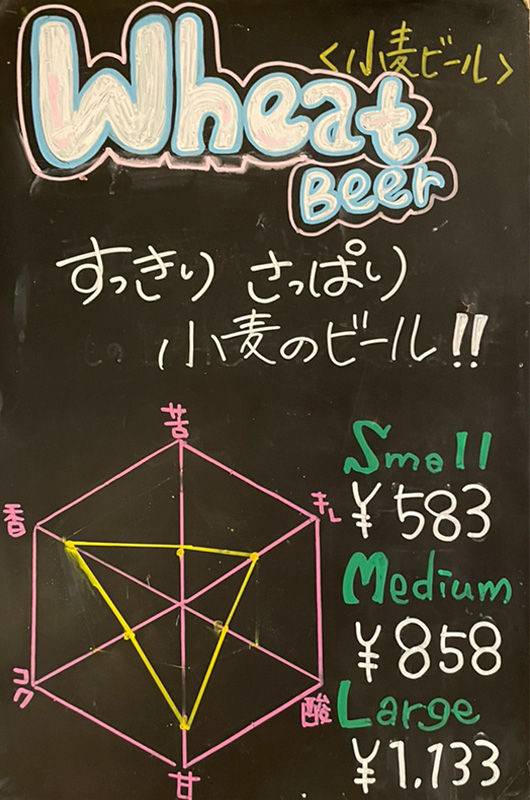 Wheat
<小麦ビール>
Beer
すっきり さっぱり
小麦のビール!!
苦
香
キレ
コク
酸
甘
Small
¥583
Medium
¥858
Large
¥1,133